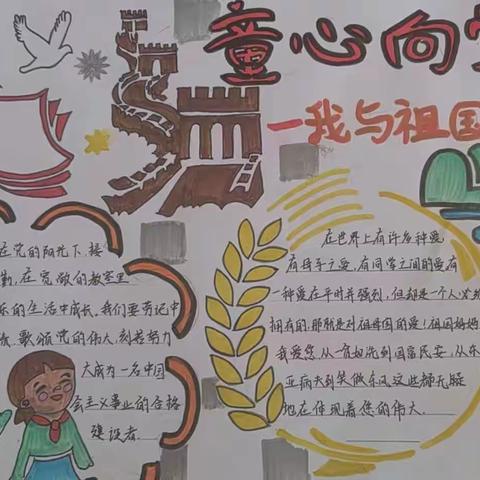 童心向党
一我与祖国
在党的阳光下,接
勤,在宽敞的教室里
乐的生活中成长。我们要劳记中
歌颂党的伟大,刻苦努力
大成为一名中国
会主义事业的合格
建设者
在世界上有许多种爱
有母子之爱,有同学之间的爱,有
一种爱在平时并不强烈,但却是一个人必须
拥有的,那就是对祖母国的爱!祖国妈妈
我爱您,从一穷如洗到国富民安,从东
亚病夫到笑傲东风这些都无疑
地在体现着您的伟大